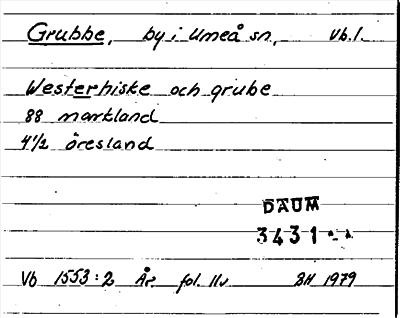 Grubbe, by i Umeå sn, Vb.l.
Westerhiske och grube
88 markland
4 1/2 öresland
DAUM
3431
Vb 1553:2 År fol. 11v BH 1979